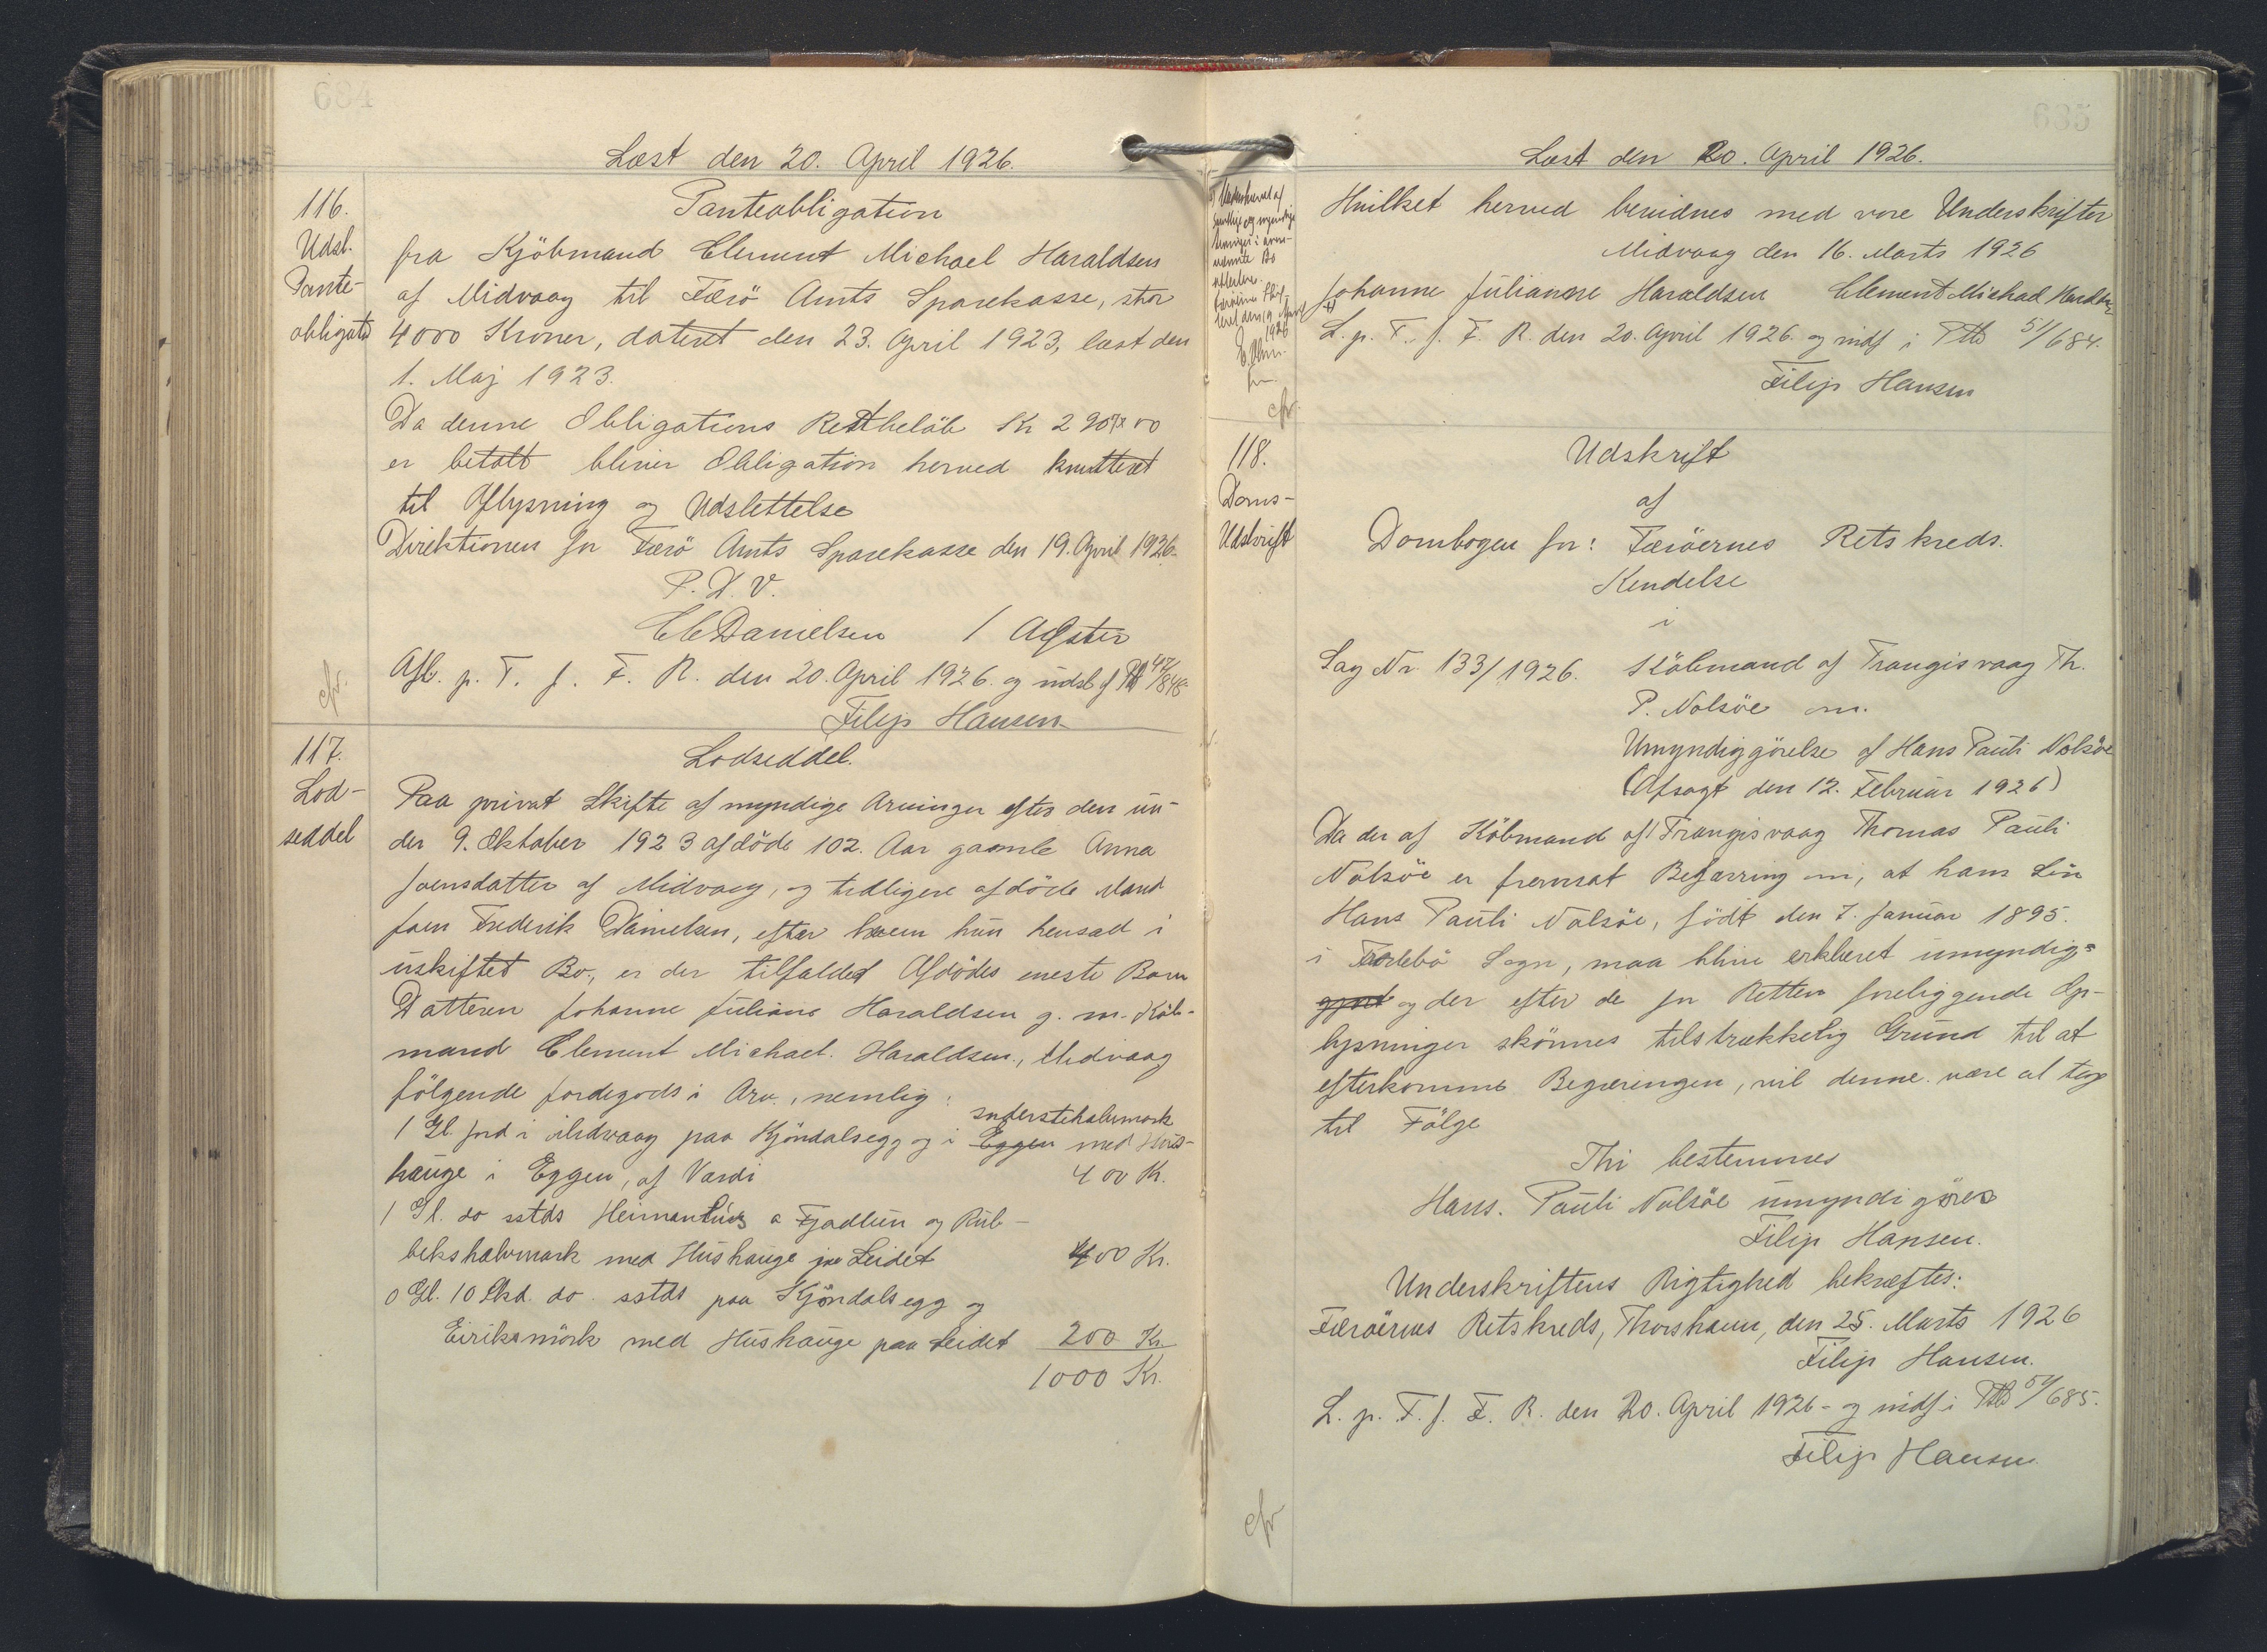 684
Læst den 20. April 1926.
116.
Udsl.
Pante-
obligation
Panteobligation
fra Kjöbmand Clement Michael Haraldsen
af Midvaag til Færö Amts Sparekasse, stor
4000 Kroner, dateret den 23. April 1923, læst den
1. Maj 1923.
Da denne Obligations Restbelöb Kr
er betalt bliver Obligation herved kvitteret
til Aflysning og Udslettelse
Direktionen for Færö Amts Sparekasse den 19. April 1926.
P. D. V.
Danielsen /
Afl. p. T. f. F. R. den 20. April 1926. og udsl. af Ptb 47/848
Filip Hansen
cfr.
117.
Lod-
seddel
Lodseddel.
Paa privat Skifte af myndige Arvinger efter den un-
der 9. Oktober 1923 afdöde 102. Aar gamle Anna
Joensdatter af Midvaag, og tidligere afdöde Mand
Joen Frederik Danielsen, efter hvem hun hensad i
uskiftet Bo, er der tilfaldet Afdödes eneste Barn
Datteren Johanne Juliane Haraldsen g. m. Köb-
mand Clement Michael. Haraldsen., Midvaag
fölgende Jordegods i Arv., nemlig:
suderstehalvmark
1 Gl. Jord i Midvaag paa Kjöndalsegg og i Eggen med Hus-
hauge i Eggen, af Værdi 400 Kr.
1 Gl. do sstds a og Rub-
bekshalvmark med Hushauge paa Leidet 400 Kr.
0 Gl. 10 Skd. do. sstds paa Kjöndalsegg og
Eiriksmörk med Hushauge paa Leidet 200 Kr.
1000 Kr.
685
Læst den 20. April 1926.
Hvilket herved bevidnes med vore Underskrifter
Midvaag den 16. Marts 1926
Johanne Julianne Haraldsen Clement Michael Haraldsen
L. p. T. f. F. R. den 20. April 1926. og indf i Ptb 51/684.
Filip Hansen
cfr.
118.
Doms-
Udskrift
Udskrift
af
Dombogen for: Færöernes Retskreds.
Kendelse
i
Sag Nr. 133/1926. Köbmand af Trangisvaag Th.
P. Nolsöe om.
Umyndiggörelse af Hans Pauli Nolsöe
(Afsagt den 12. Februar 1926)
Da der af Köbmand af Trangisvaag Thomas Pauli
Nolsöe er fremsat Begæring om, at hans Sön
Hans Pauli Nolsöe, födt den 7. Januar 1895.
i Sogn, maa blive erklæret umyndig-
gjort og der efter de for Retten foreliggende Op-
lysninger skönnes tilstrækkelig Grund til at
efterkomme Begæringen, vil denne være at tage
til Fölge
Thi bestemmes
Hans. Pauli Nolsöe umyndigöres
Filip Hansen.
Underskriftens Rigtighed bekræftes:
Færöernes Retskreds, Thorshavn, den 25. Marts 1926
Filip Hansen.
L. p. T. f. F. R. den 20. April 1926 - og indf i Ptb 51/685.
Filip Hansen
cfr